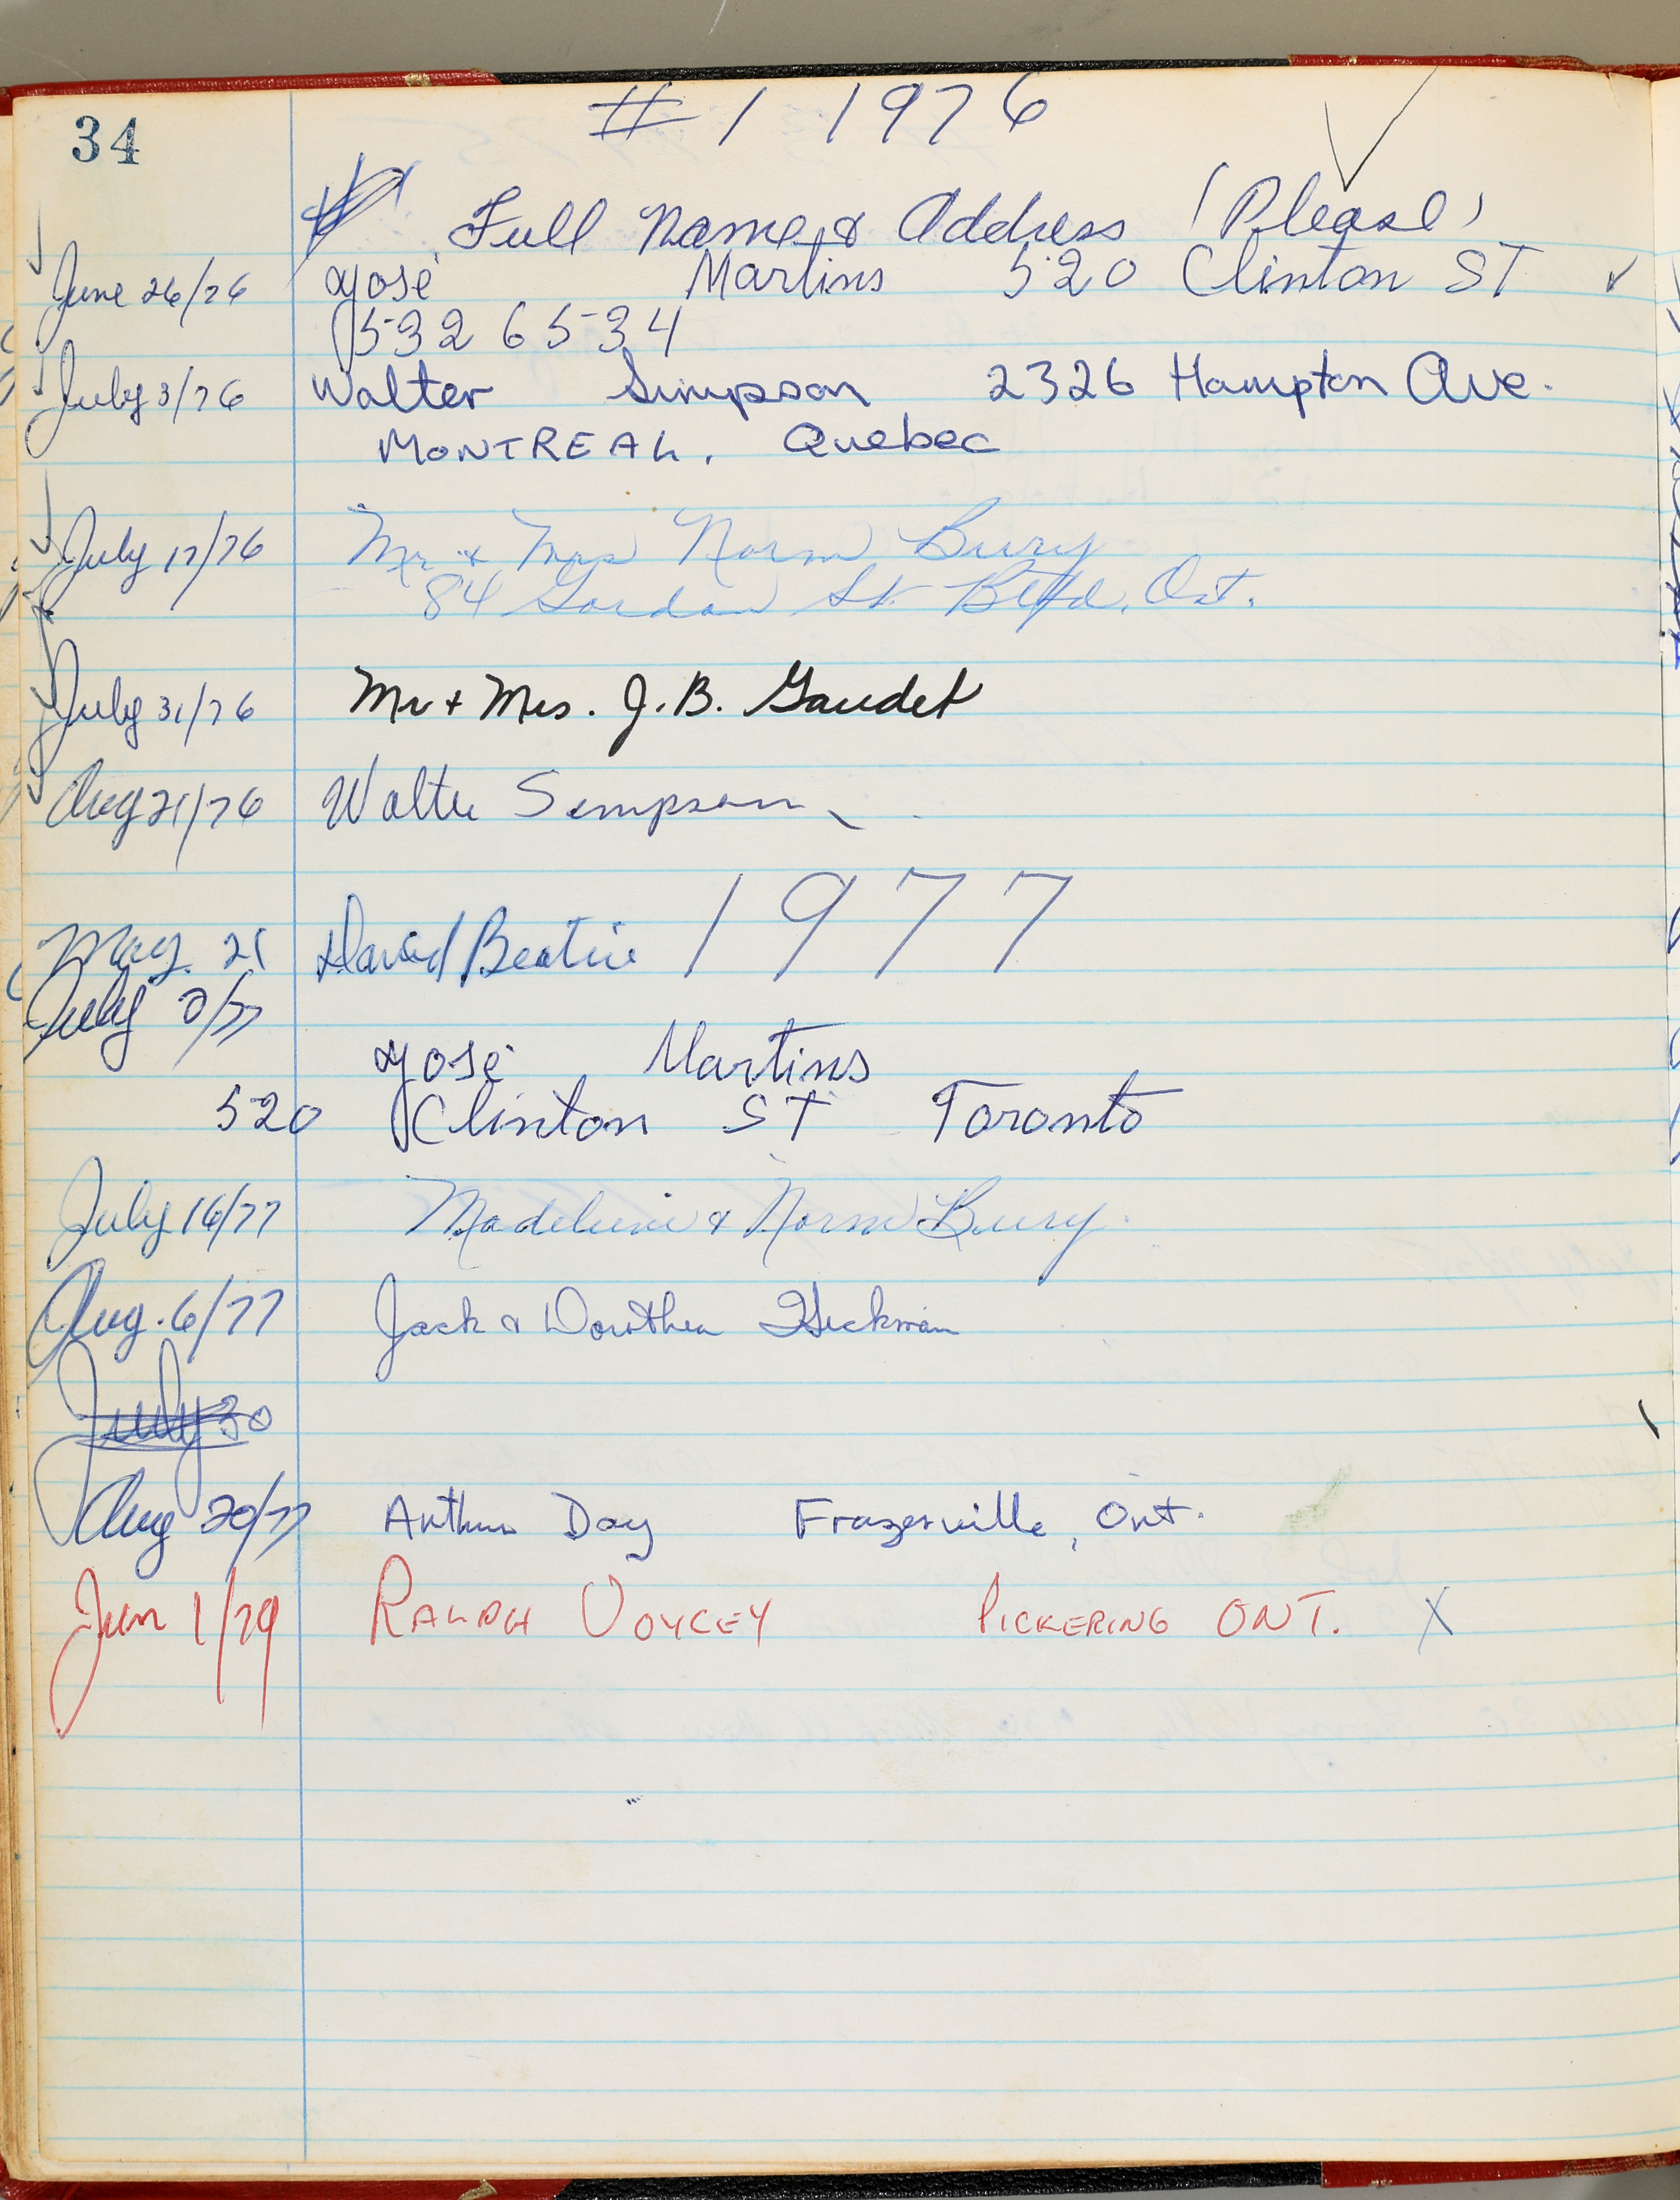 34
# 1 1976
Full Name & Address (Please)
June 26/76 José Martins 520 Clinton ST
532 6534
July 3/76 Walter Simpson 2326 Hampton Ave.
MONTREAL, Quebec
July 17/76 Mr & Mrs Norm Bury
84 Gordon St. Btfd, Ont.
July 31/76 Mr + Mrs. J. B. Gaudet
Aug 21/76 Walter Simpson
1977
May. 21 David Beatie
July /77
José Martins
520 Clinton ST Toronto
July 16/77 Madeleine & Norm Bury.
Aug. 6/77 Jack & Dorothea Hickman
July 30
Aug 20/77 Arthur Day Frazerville, Ont.
Jun 1/79 RALPH VOYCEY PICKERING ONT. X